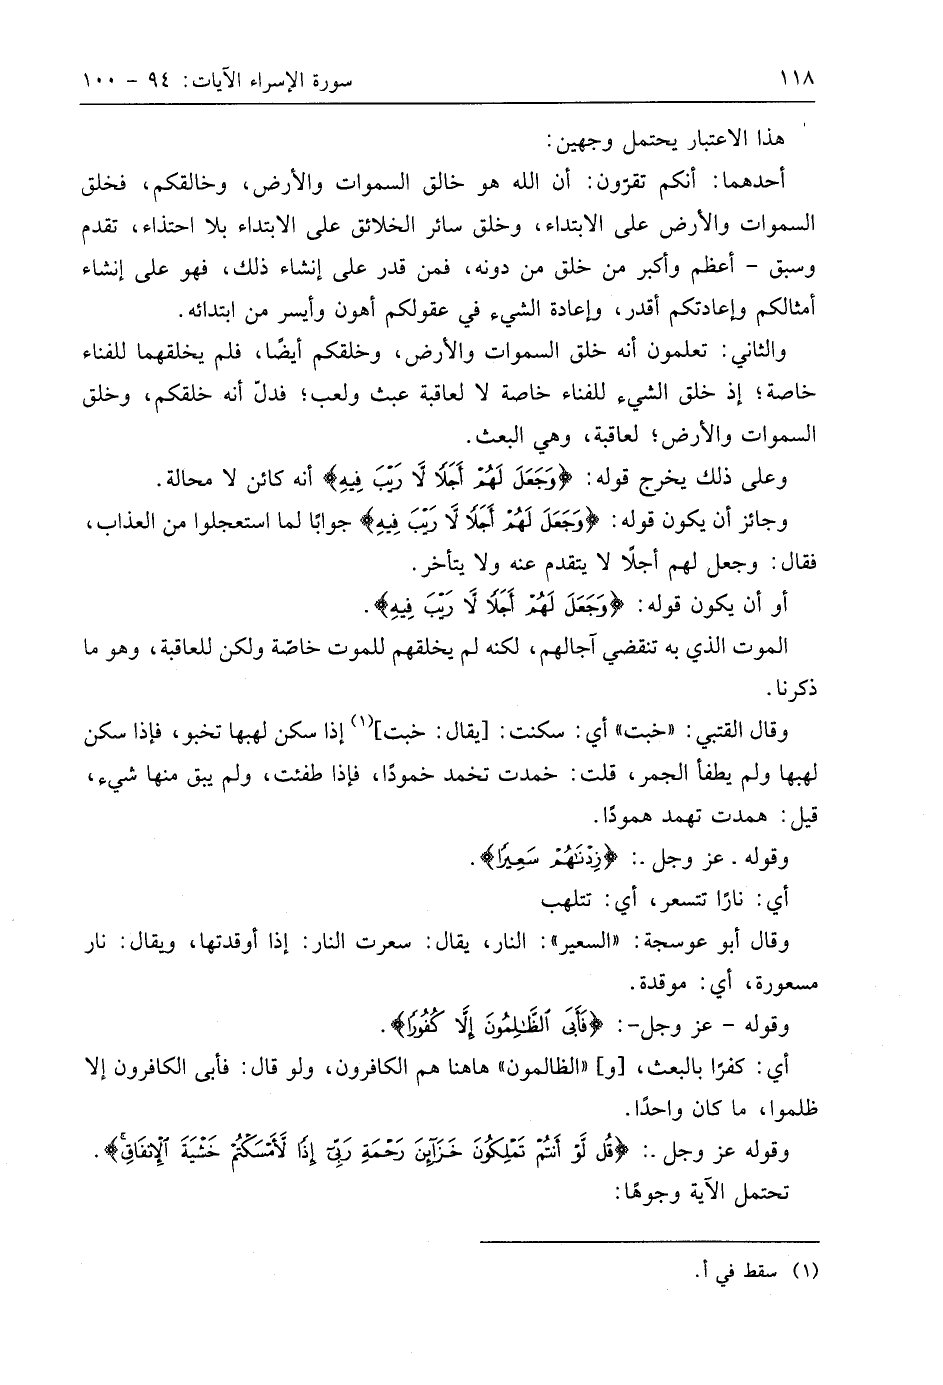 ١١٨
سورة الإسراء الآيات: ٩٤ - ١٠٠
هذا الاعتبار يحتمل وجهين:
أحدهما: أنكم تقرّون: أن الله هو خالق السموات والأرض، وخالقكم، فخلق
السموات والأرض على الابتداء، وخلق سائر الخلائق على الابتداء بلا احتذاء، تقدم
وسبق - أعظم وأكبر من خلق من دونه، فمن قدر على إنشاء ذلك، فهو على إنشاء
أمثالكم وإعادتكم أقدر، وإعادة الشيء في عقولكم أهون وأيسر من ابتدائه.
والثاني: تعلمون أنه خلق السموات والأرض، وخلقكم أيضًا، فلم يخلقهما للفناء
خاصة؛ إذ خلق الشيء للفناء خاصة لا لعاقبة عبث ولعب؛ فدلّ أنه خلقكم، وخلق
السموات والأرض؛ لعاقبة، وهي البعث.
وعلى ذلك يخرج قوله: ﴿وَجَعَلَ لَهُمْ أَجَلًا لَّا رَيْبَ فِيهِ﴾ أنه كائن لا محالة.
وجائز أن يكون قوله: ﴿وَجَعَلَ لَهُمْ أَجَلًا لَّا رَيْبَ فِيهِ﴾ جوابًا لما استعجلوا من العذاب،
فقال: وجعل لهم أجلًا لا يتقدم عنه ولا يتأخر.
أو أن يكون قوله: ﴿وَجَعَلَ لَهُمْ أَجَلًا لَّا رَيْبَ فِيهِ﴾.
الموت الذي به تنقضي آجالهم، لكنه لم يخلقهم للموت خاصّة ولكن للعاقبة، وهو ما
ذكرنا.
وقال القتبي: «خبت» أي: سكنت: [يقال: خبت](١) إذا سكن لهبها تخبو، فإذا سكن
لهبها ولم يطفأ الجمر، قلت: خمدت تخمد خمودًا، فإذا طفئت، ولم يبق منها شيء،
قيل: همدت تهمد همودًا.
وقوله . عز وجل .: ﴿زِدْنَٰهُمْ سَعِيرًا﴾.
أي: نارًا تتسعر، أي: تتلهب
وقال أبو عوسجة: «السعير»: النار، يقال: سعرت النار: إذا أوقدتها، ويقال: نار
مسعورة، أي: موقدة.
وقوله - عز وجل-: ﴿فَأَبَى ٱلظَّٰلِمُونَ إِلَّا كُفُورًا﴾.
أي: كفرًا بالبعث، [و] «الظالمون» هاهنا هم الكافرون، ولو قال: فأبى الكافرون إلا
ظلموا، ما كان واحدًا.
وقوله عز وجل .: ﴿قُل لَّوْ أَنتُمْ تَمْلِكُونَ خَزَآئِنَ رَحْمَةِ رَبِّىٓ إِذًا لَّأَمْسَكْتُمْ خَشْيَةَ ٱلْإِنفَاقِ﴾.
تحتمل الآية وجوهًا:
(١) سقط في أ.